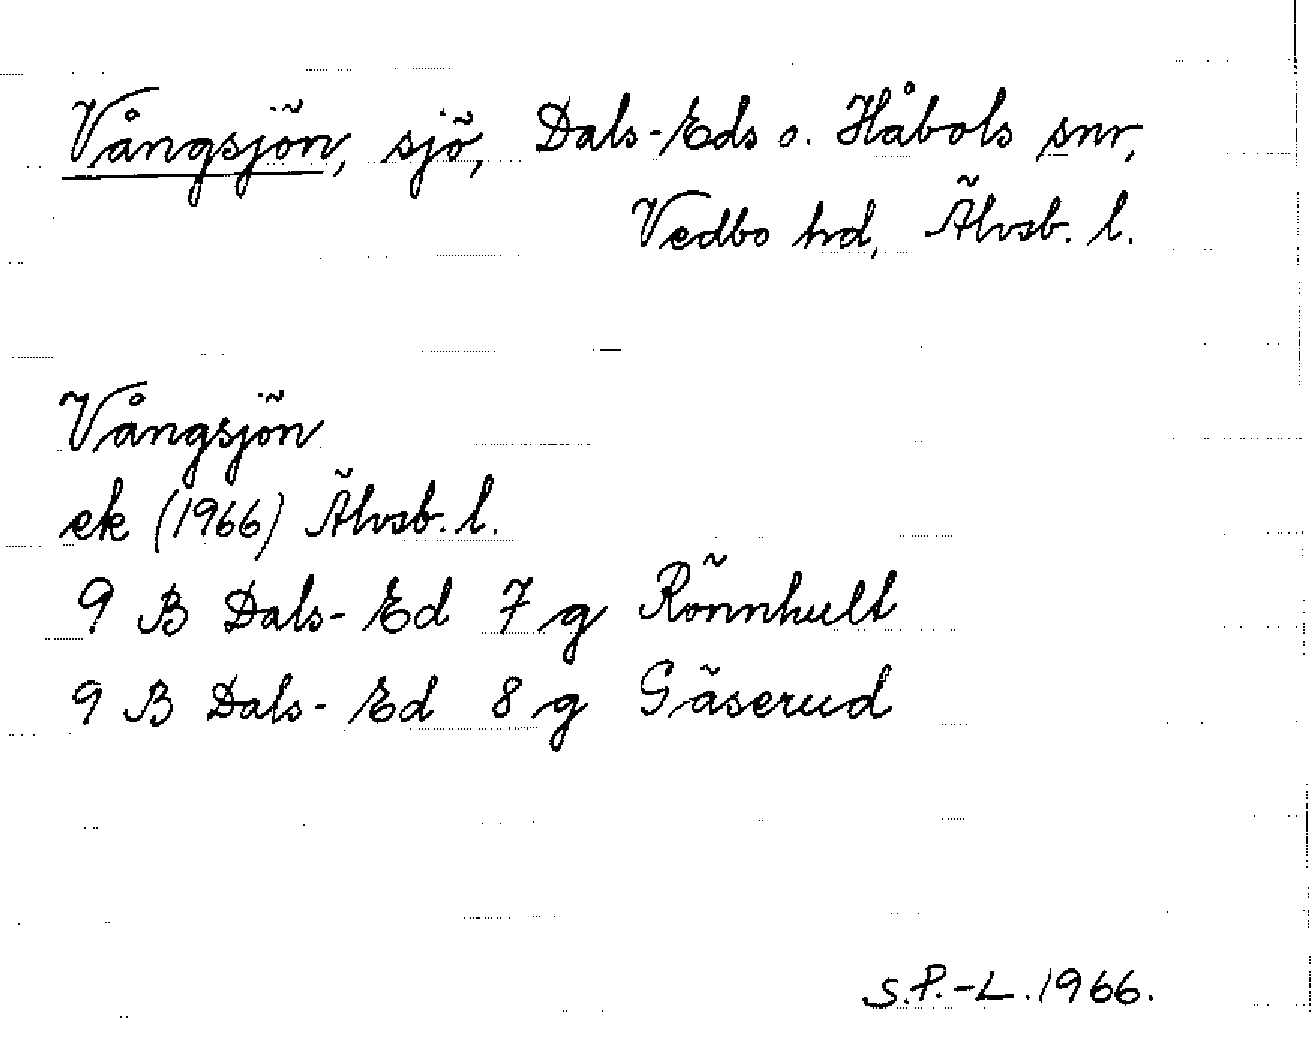 Vångsjön, sjö, Dals-Eds o. Håbols snr,
Vedbo hd, Älvsb. l.
Vångsjön
ek (1966) Älvsb. l.
9 B Dals-Ed 7 g Rönnhult
9 B Dals-Ed 8 g Gäserud
S.P.-L. 1966.